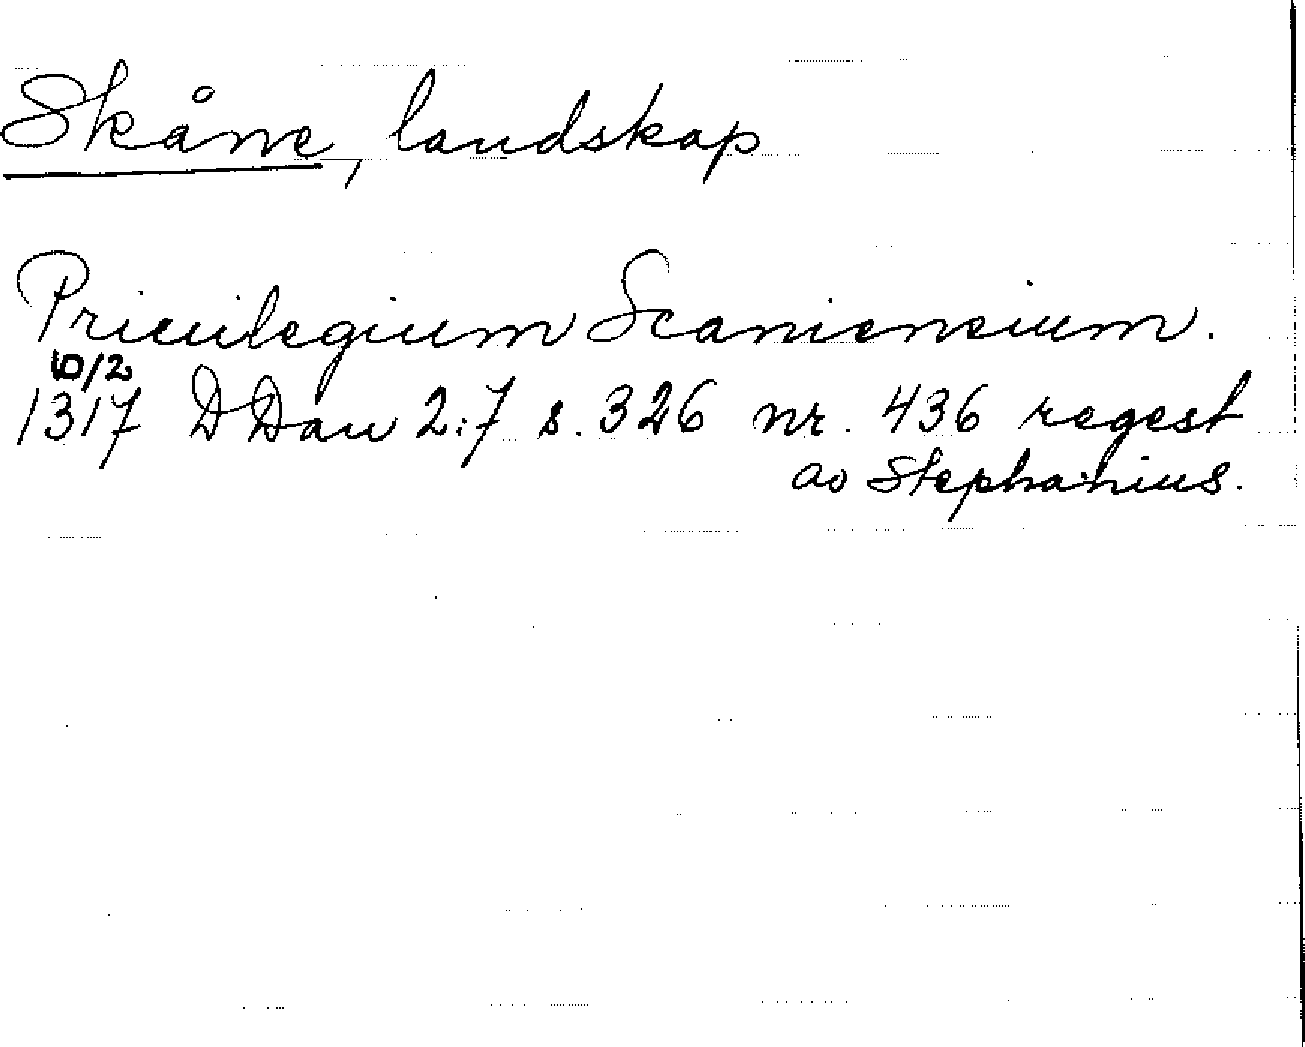 Skåne, landskap
Priuilegium Scaniensium.
10/2
1317 DDan 2:7 s. 326 nr. 436 regest
av Stephanius.